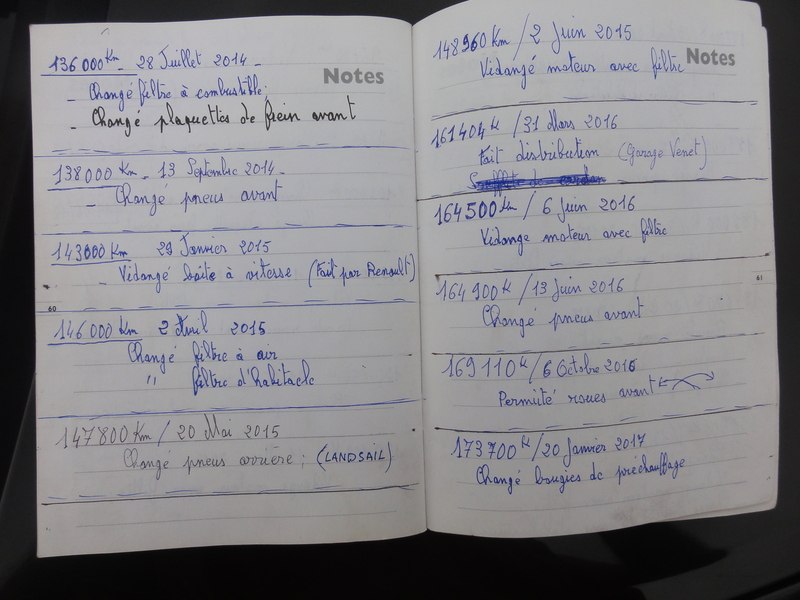 136000 Km - 28 Juillet 2014 -
Notes
- Changé filtre à combustible;
- Changé plaquettes de frein avant
138000 Km - 13 Septembre 2014 -
- Changé pneus avant
143000 Km 29 Janvier 2015
- Vidangé boite à vitesse (Fait par Renault)
60
146000 Km 2 Avril 2015
Changé filtre à air
" filtre d'Habitacle
147800 Km / 20 Mai 2015
Changé pneus arrière; (LANDSAIL)
148960 Km / 2 Juin 2015
Notes
Vidangé moteur avec filtre
161404 k / 31 Mars 2016
Fait distribution (Garage Venet)
164500 km / 6 Juin 2016
Vidange moteur avec filtre
61
164900 k / 13 Juin 2016
Changé pneus avant
169110 k / 6 Octobre 2016
Permuté roues avant
173700 k / 20 Janvier 2017
Changé bougies de préchauffage